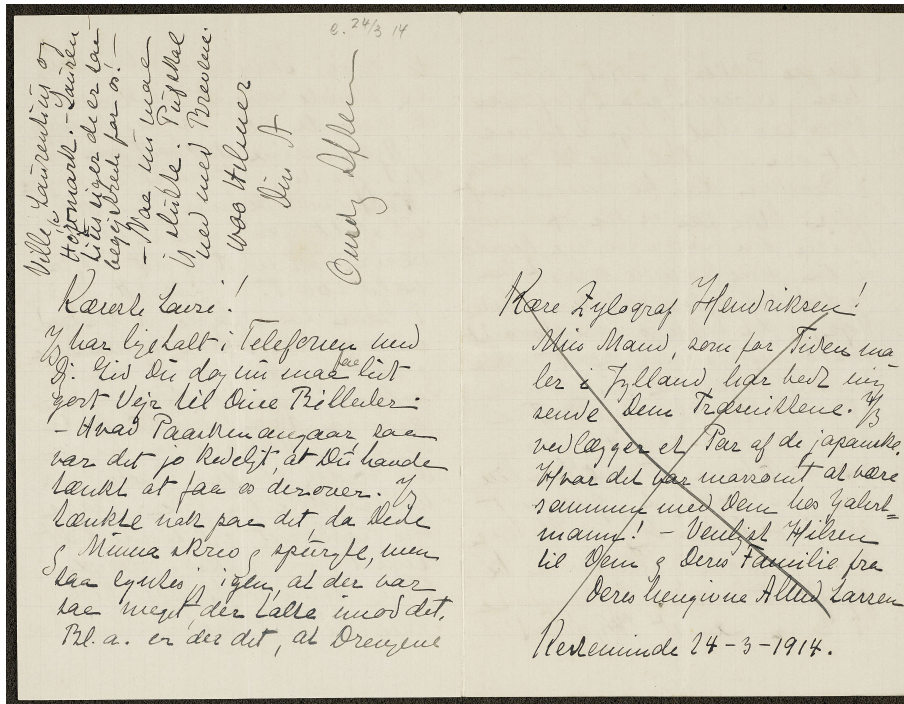 e. 24/3 14
Ville Laurentius og
Hornmark. - Lauren
tius siger de er saa
begejstrede for os! -
- Naa nu maa
j slutte. Puf skal
ned med Brevene.
Hilsner
Din A
Kæreste Lavsi!
Jeg har lige talt i Telefonen med
Dj. Gid Du dog nu maa faa lidt
godt Vejr til Dine Billeder.
- Hvad Paasken angaar, saa
var det jo kedeligt, at Du havde
tænkt at faa os derover. Jeg
tænkte nok paa det, da Dede
og Minna skrev og spurgte, men
saa syntes j igen, at der var
saa meget, der talte imod det.
Bl. a. er der det, at Drengene
Kære Xylograf Hendriksen!
Min Mand, som for Tiden ma
ler i Jylland, har bedt mig
sende Dem Træsnittene. Jeg
vedlægger et Par af de japanske.
Hvor det var morsomt at være
sammen med Dem hos Zahrt=
mann! - Venligst Hilsen
til Dem og Deres Familie fra
Deres hengivne Alhed Larsen
Kerteminde 24-3-1914.